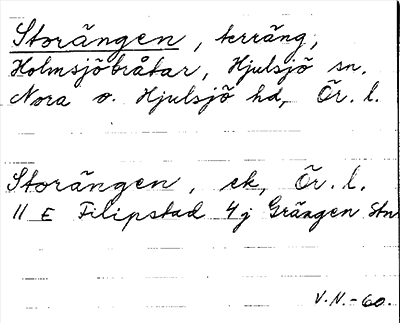 Storängen, terräng,
Holmsjöbråtar, Hjulsjö sn.
Nora o. Hjulsjö hd, Ör. l.
Storängen, ek, Ör. l.
11 E Filipstad 4j Grängen Stn
V.N.-60.